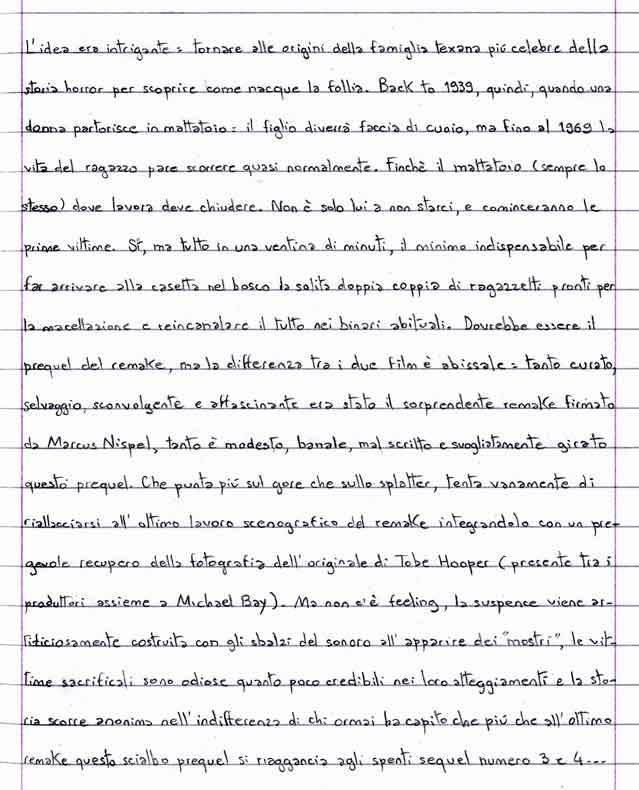 L'idea era intrigante: tornare alle origini della famiglia texana più celebre della
storia horror per scoprire come nacque la follia. Back to 1939, quindi, quando una
donna partorisce in mattatoio: il figlio diverrà faccia di cuoio, ma fino al 1969 la
vita del ragazzo pare scorrere quasi normalmente. Finchè il mattatoio (sempre lo
stesso) dove lavora deve chiudere. Non è solo lui a non starci, e cominceranno le
prime vittime. Sì, ma tutto in una ventina di minuti, il minimo indispensabile per
far arrivare alla casetta nel bosco la solita doppia coppia di ragazzetti pronti per
la macellazione e reincanalare il tutto nei binari abituali. Dovrebbe essere il
prequel del remake, ma la differenza tra i due film è abissale: tanto curato,
selvaggio, sconvolgente e affascinante era stato il sorprendente remake firmato
da Marcus Nispel, tanto è modesto, banale, mal scritto e svogliatamente girato
questo prequel. Che punta più sul gore che sullo splatter, tenta vanamente di
riallacciarsi all'ottimo lavoro scenografico del remake integrandolo con un pre-
gevole recupero della fotografia dell'originale di Tobe Hooper (presente tra i
produttori assieme a Michael Bay). Ma non c'è feeling, la suspence viene ar-
tificiosamente costruita con gli sbalzi del sonoro all'apparire dei "mostri", le vit-
time sacrificali sono odiose quanto poco credibili nei loro atteggiamenti e la sto-
ria scorre anonima nell'indifferenza di chi ormai ha capito che più che all'ottimo
remake questo scialbo prequel si riaggancia agli spenti sequel numero 3 e 4...